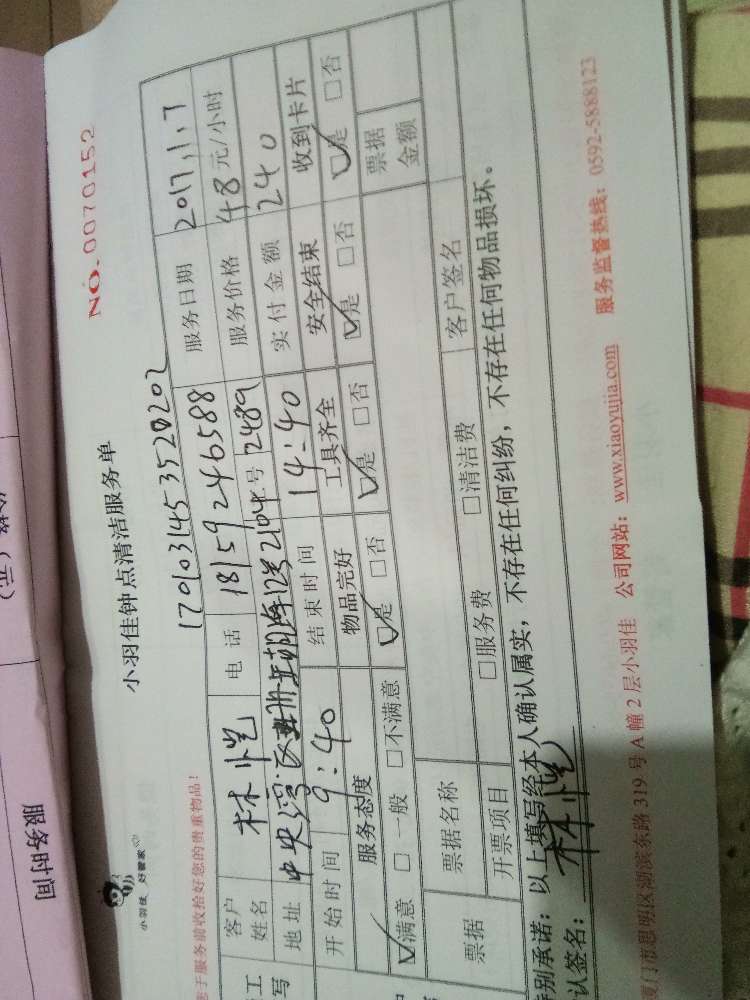 小羽佳 好管家
小羽佳钟点清洁服务单
NO.0070152
您于服务前收拾好您的贵重物品！
1701031453520202
客户姓名 林恺 电话 18159246588 服务日期 2017,1,7
地址 号 2489 服务价格 48元/小时
开始时间 9:40 结束时间 14:40 实付金额 240
服务态度 物品完好 工具齐全 安全结束 收到卡片
☑满意 □一般 □不满意 ☑是 □否 ☑是 □否 ☑是 □否 ☑是 □否
票据 票据名称 票据金额
开票项目 □服务费 □清洁费 客户签名
特别承诺：以上填写经本人确认属实，不存在任何纠纷，不存在任何物品损坏。
认签名：林恺
厦门市思明区湖滨东路319号A幢2层小羽佳 公司网站：www.xiaoyujia.com 服务监督热线：0592-5888123
服务时间
（元）